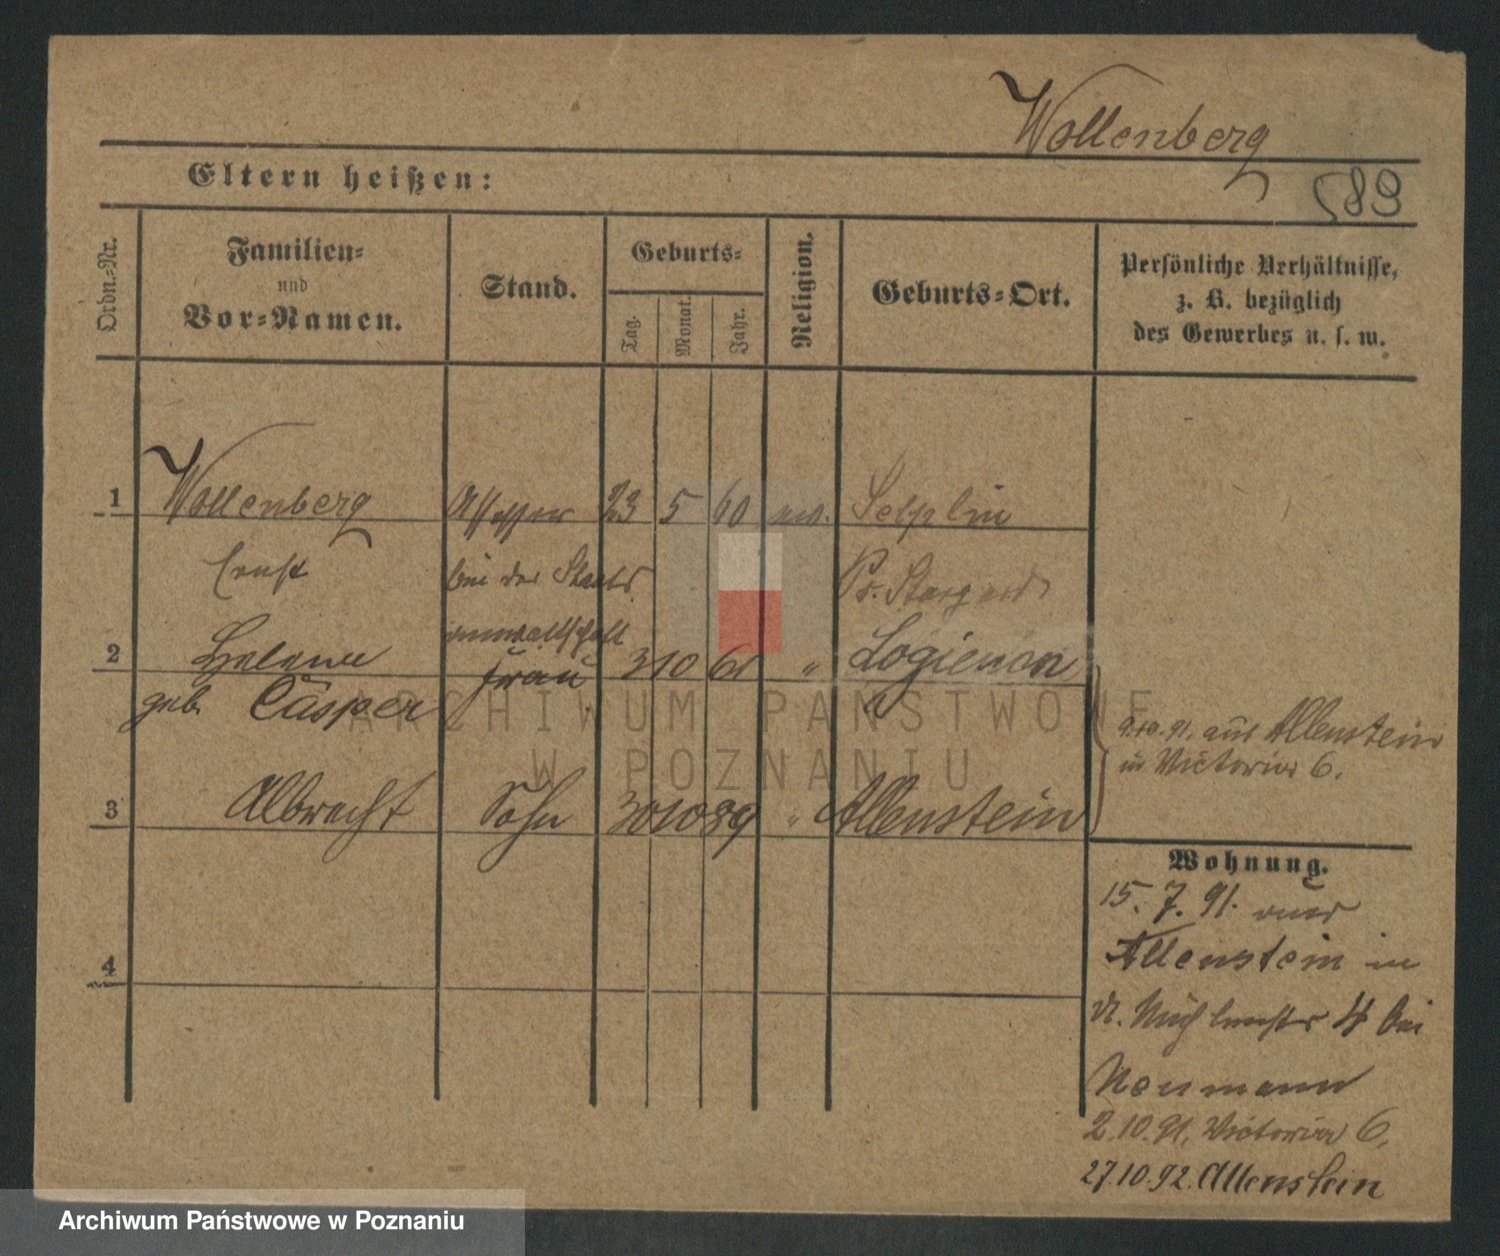 Wollenberg
Eltern heißen:
589
Ordn.-Nr.
Familien-
und
Vor-Namen.
Stand.
Geburts-
Tag.
Monat.
Jahr.
Religion.
Geburts-Ort.
Persönliche Verhältnisse,
z. B. bezüglich
des Gewerbes u. s. w.
1 Wollenberg Assessor 23 5 60 Pelplin
Ernst bei der Staats Pr. Stargard
anwaltschaft
2 Helene Frau 3 10 61 "
geb. Casper
9.10.91. aus Allenstein
in Victoria 6.
3 Albrecht Sohn 30 10 89 " Allenstein
Wohnung.
15. 7. 91. aus
Allenstein in
4 bei
4
Neumann
2.10.91. Victoria 6.
27.10.92. Allenstein
ARCHIWUM PAŃSTWOWE
W POZNANIU
Archiwum Państwowe w Poznaniu